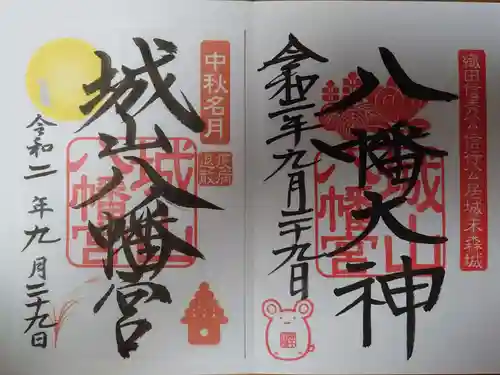 織田信秀公信行公居城末森城
八幡大神
城山八幡宮
令和二年九月二十九日
中秋名月
疫病退散
城山八幡宮
城山八幡宮
令和二年九月二十九日